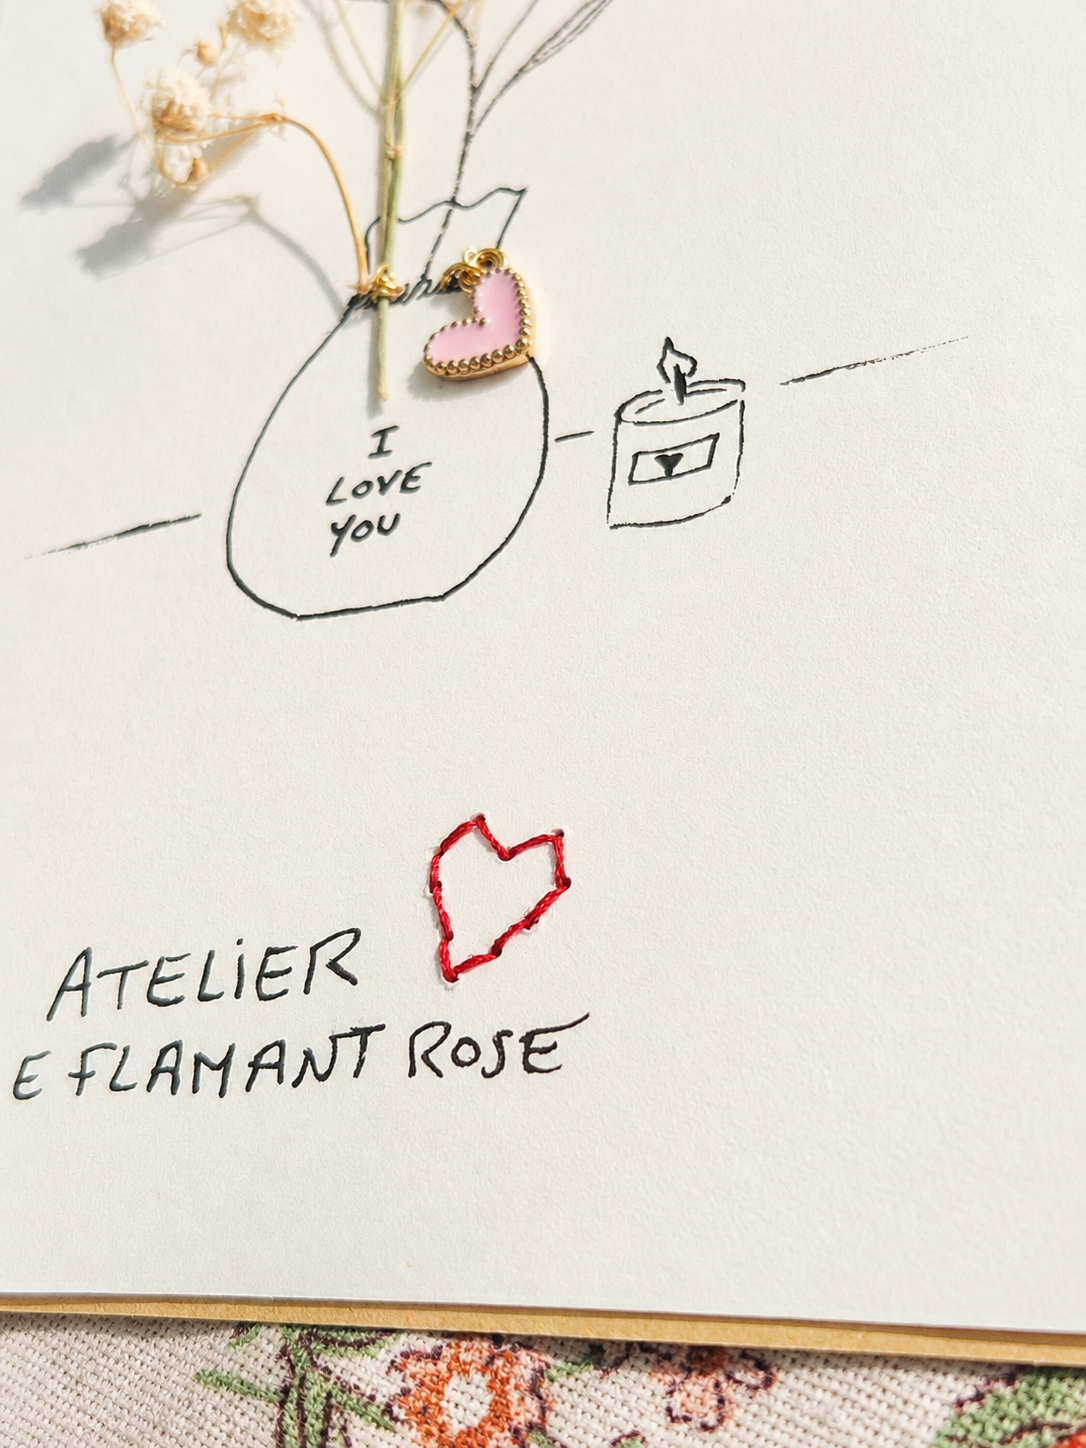 I
LOVE
YOU
ATELIER
E FLAMANT ROSE